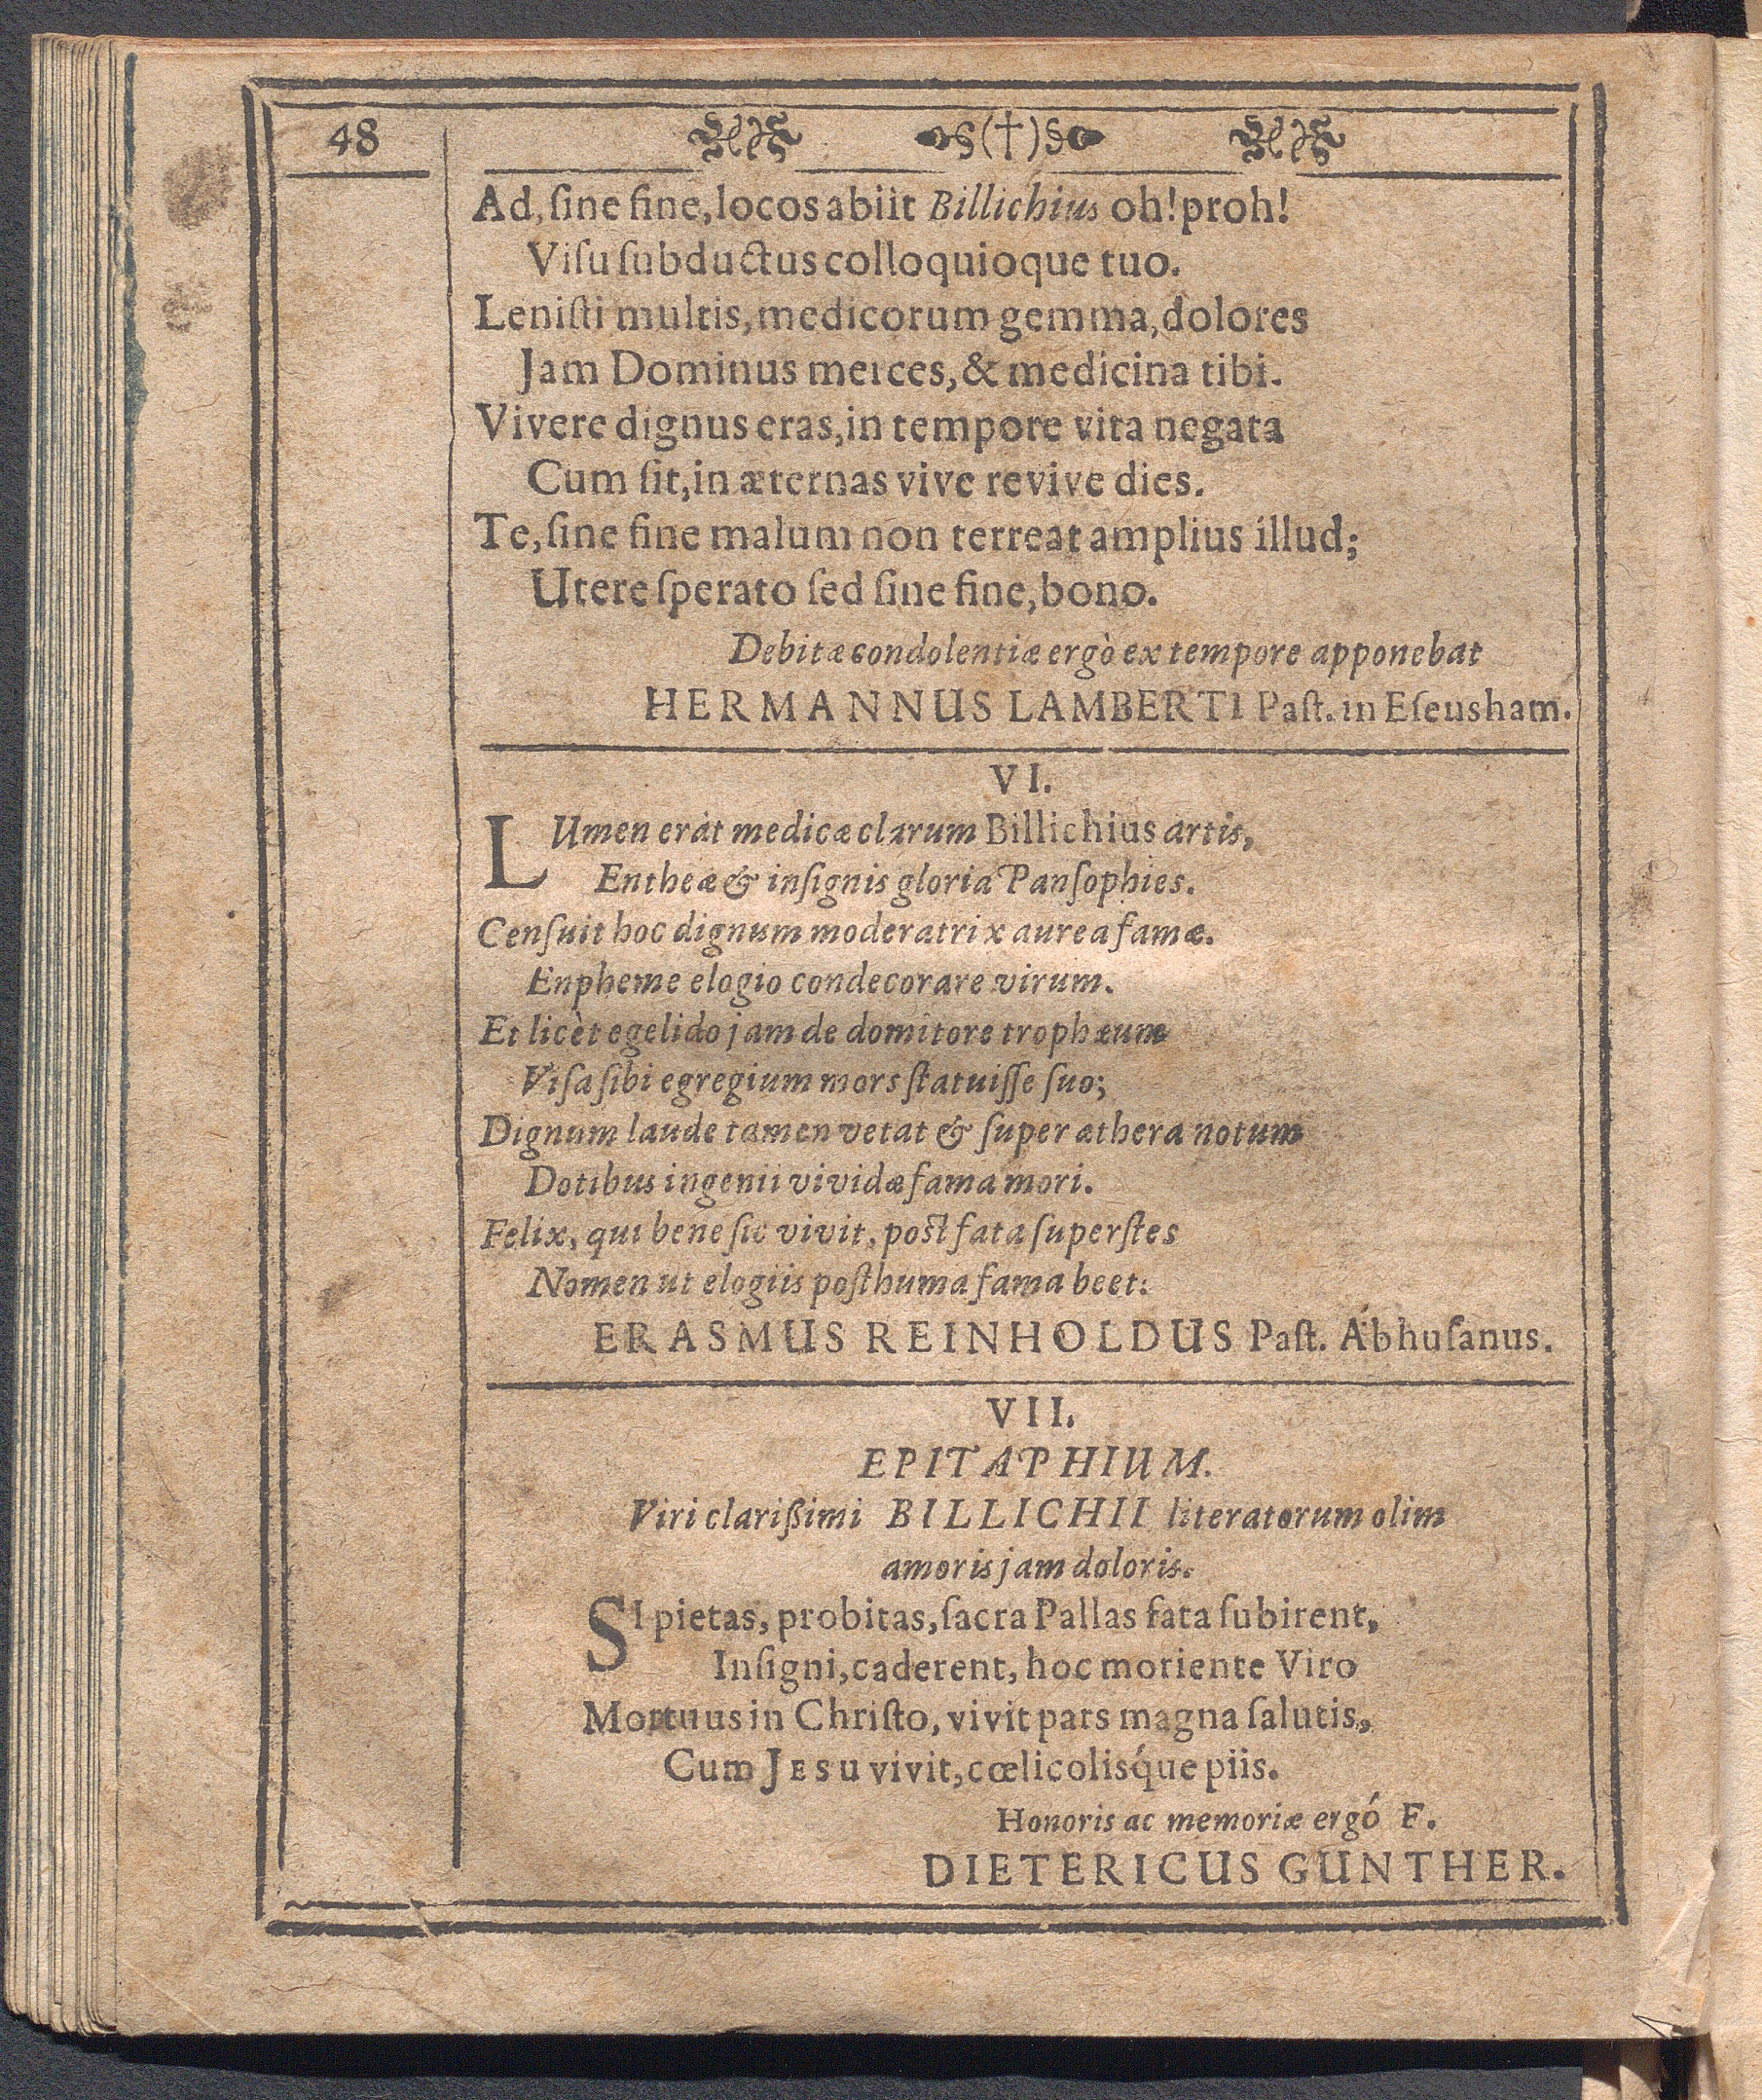 48 §(†)§
Ad, ſine fine, locos abiit Billichius oh! proh!
Viſu ſubductus colloquioque tuo.
Leniſti multis, medicorum gemma, dolores
Jam Dominus merces, & medicina tibi.
Vivere dignus eras, in tempore vita negata
Cum ſit, in æternas vive revive dies.
Te, ſine fine malum non terreat amplius illud;
Utere ſperato ſed ſine fine, bono.
Debitæ condolentiæ ergò ex tempore apponebat
HERMANNUS LAMBERTI Paſt. in Eſeusham.
VI.
LUmen erat medicæ clarum Billichius artis,
Entheæ & inſignis gloria Panſophies.
Cenſuit hoc dignum moderatrix aurea famæ.
Enpheme elogio condecorare virum.
Et licèt egelido jam de domitore trophæum
Viſa ſibi egregium mors ſtatuiſſe ſuo;
Dignum laude tamen vetat & ſuper æthera notum
Dotibus ingenii vividæ fama mori.
Felix, qui bene ſic vivit, poſt fata ſuperſtes
Nomen ut elogiis poſthuma fama beet:
ERASMUS REINHOLDUS Paſt. Abhuſanus.
VII.
EPITAPHIUM.
Viri clarißimi BILLICHII literatorum olim
amoris jam doloris.
SI pietas, probitas, ſacra Pallas fata ſubirent,
Inſigni, caderent, hoc moriente Viro
Mortuus in Chriſto, vivit pars magna ſalutis,
Cum JESU vivit, cœlicolisq́ue piis.
Honoris ac memoriæ ergó F.
DIETERICUS GUNTHER.